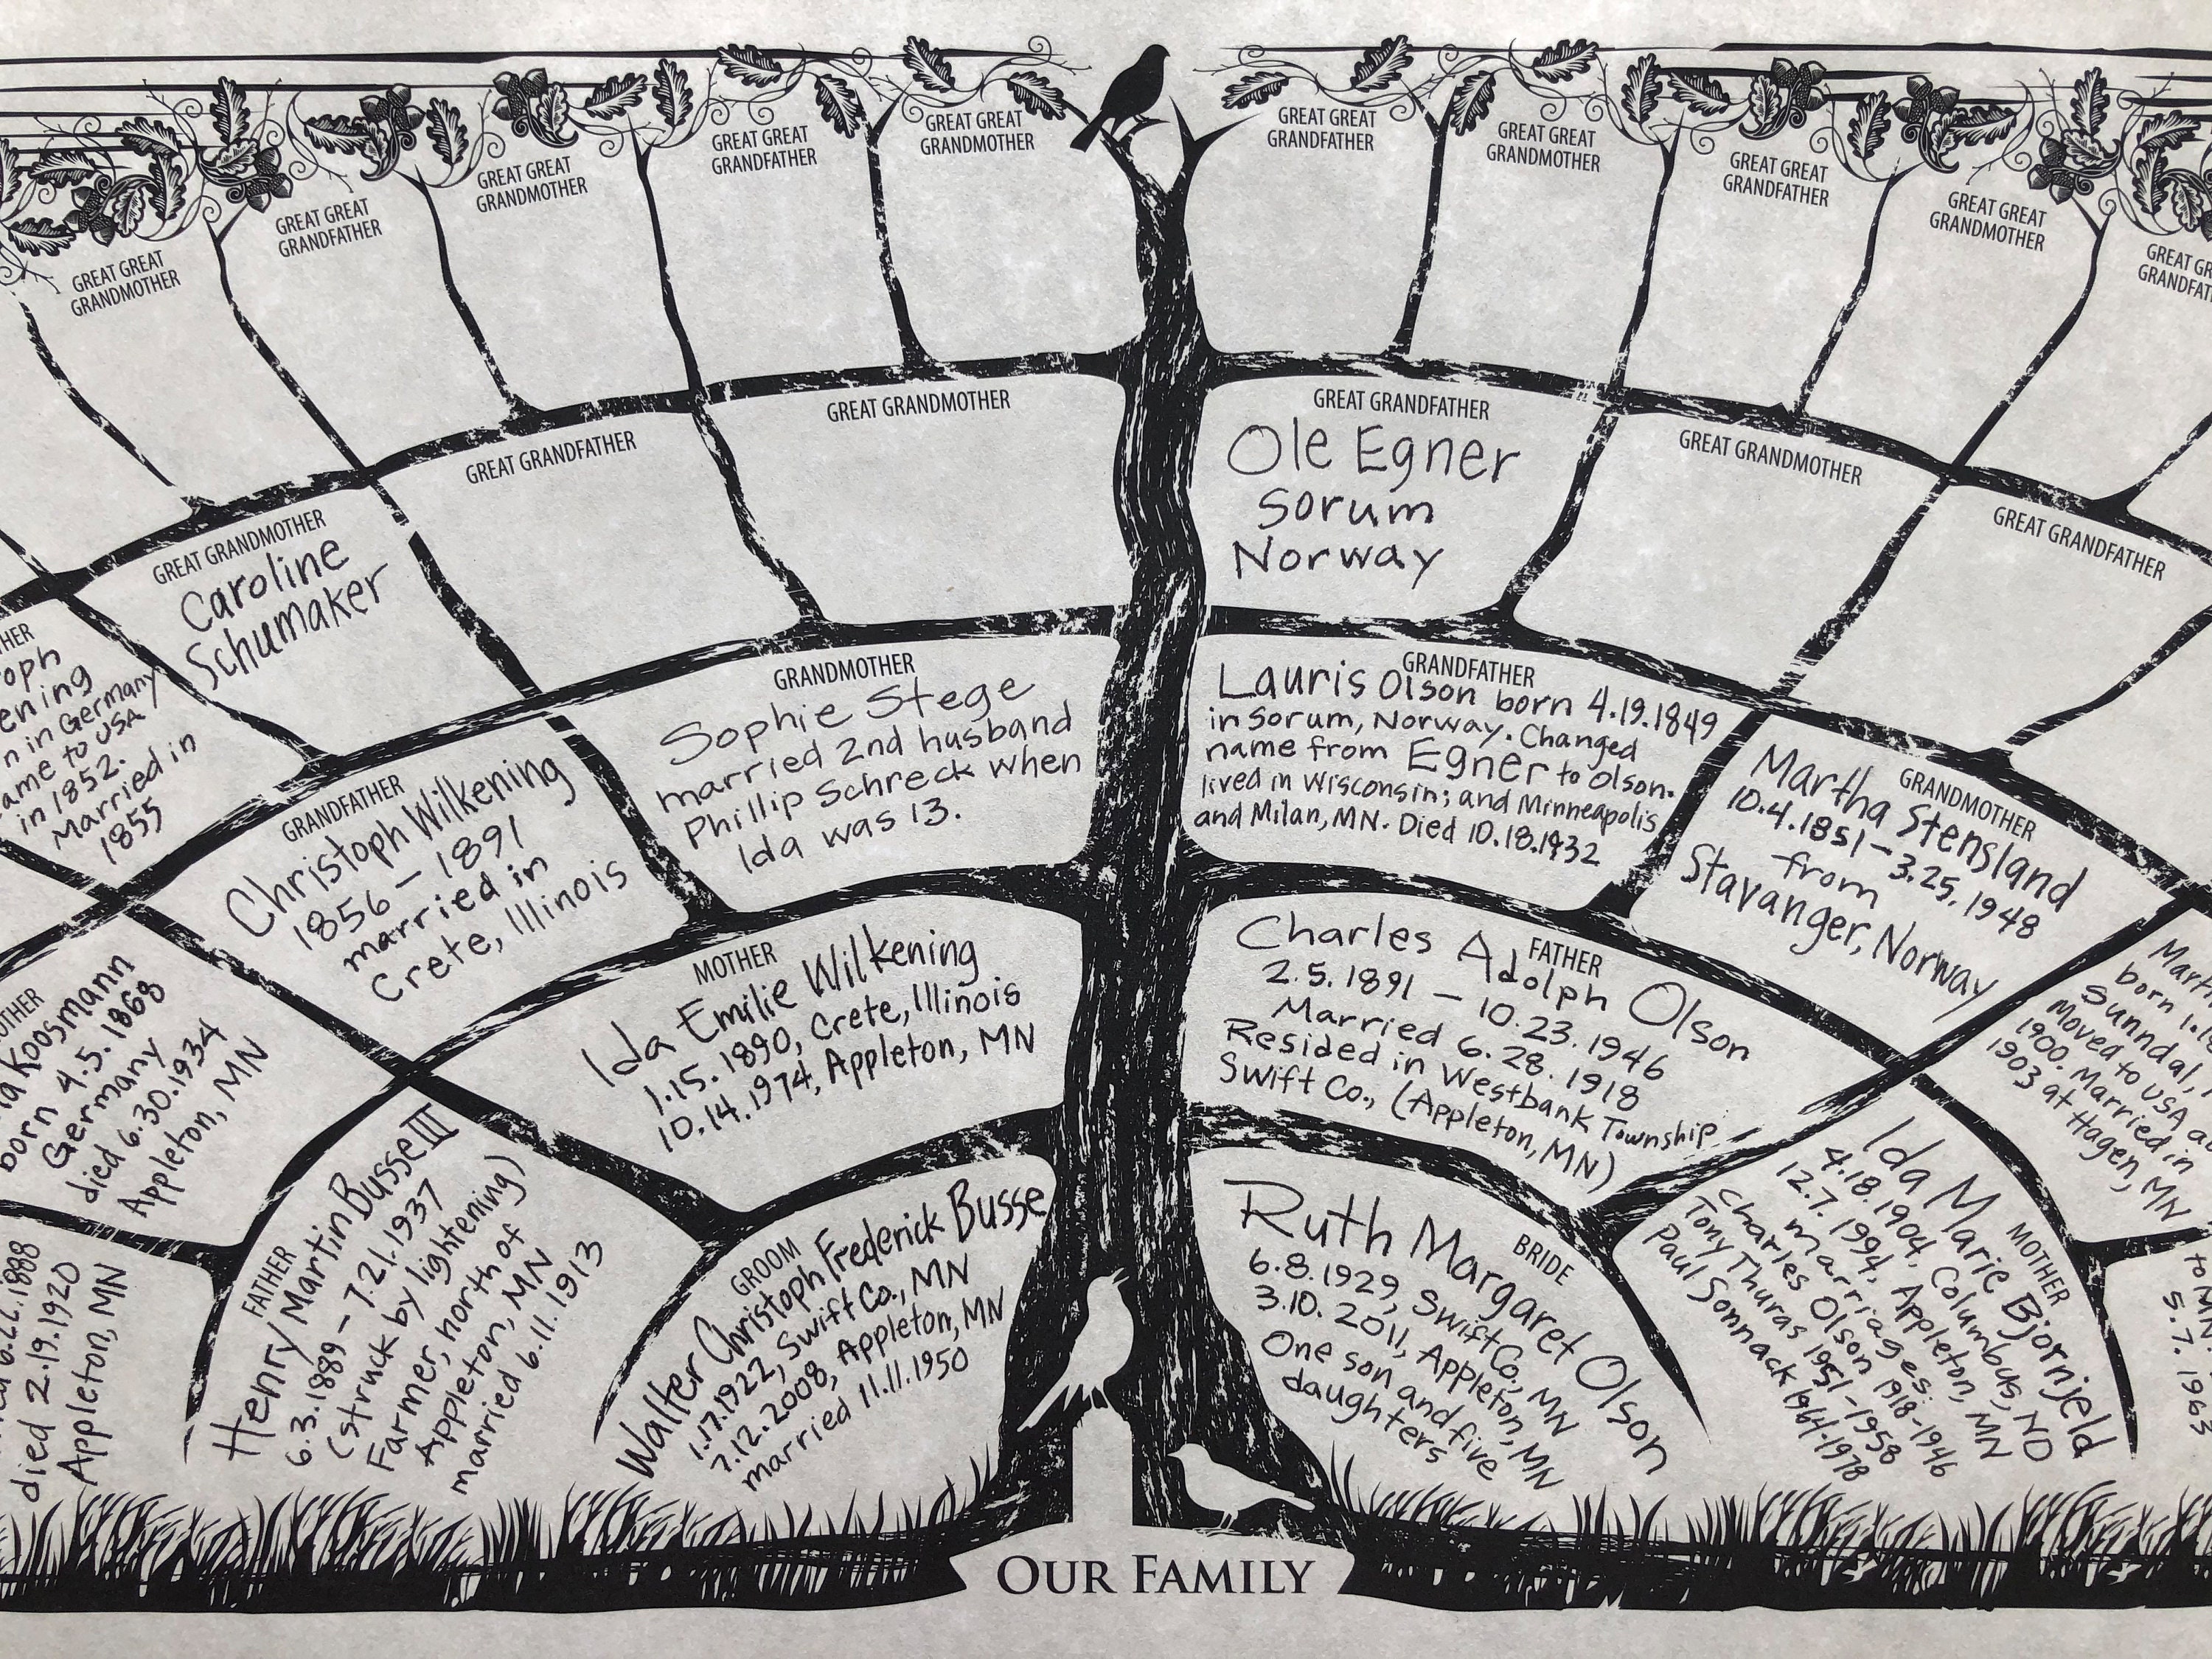 GREAT GREAT
GRANDMOTHER
GREAT GREAT
GRANDFATHER
GREAT GREAT
GRANDMOTHER
GREAT GREAT
GRANDFATHER
GREAT GREAT
GRANDMOTHER
GREAT GREAT
GRANDFATHER
GREAT GREAT
GRANDMOTHER
GREAT GREAT
GRANDFATHER
GREAT GREAT
GRANDMOTHER
GREAT
in Germany
to USA
in 1852.
Married in
1855
GREAT GRANDMOTHER
Caroline
Schumaker
GREAT GRANDFATHER
GREAT GRANDMOTHER
GREAT GRANDFATHER
Ole Egner
Sorum
Norway
GREAT GRANDMOTHER
GREAT GRANDFATHER
GRANDFATHER
Christoph Wilkening
1856 - 1891
married in
Crete, Illinois
GRANDMOTHER
Sophie Stege
married 2nd husband
Phillip Schreck when
Ida was 13.
GRANDFATHER
Lauris Olson born 4.19.1849
in Sorum, Norway. Changed
name from Egner to Olson.
lived in Wisconsin; and Minneapolis
and Milan, MN. Died 10.18.1932
GRANDMOTHER
Martha Stensland
10.4.1851 - 3.25.1948
from
Stavanger, Norway
Koosmann
born 4.5.1868
Germany
died 6.30.1934
Appleton, MN
MOTHER
Ida Emilie Wilkening
1.15.1890, Crete, Illinois
10.14.1974, Appleton, MN
FATHER
Charles Adolph Olson
2.5.1891 - 10.23.1946
Married 6.28.1918
Resided in Westbank Township
Swift Co., (Appleton, MN)
born
Sunndal,
Moved to USA
1900. Married in
1903 at Hagen, MN
died 2.19.1920
Appleton, MN
FATHER
Henry Martin Busse III
6.3.1889 - 7.21.1937
(struck by lightening)
Farmer, north of
Appleton, MN
married 6.11.1913
GROOM
Walter Christoph Frederick Busse
1.17.1922, Swift Co., MN
7.12.2008, Appleton, MN
married 11.11.1950
BRIDE
Ruth Margaret Olson
6.8.1929, Swift Co., MN
3.10.2011, Appleton, MN
One son and five
daughters
MOTHER
Ida Marie Bjornjeld
4.18.1904, Columbus, ND
12.7.1994, Appleton, MN
marriages:
Charles Olson 1918-1946
Tony Thuras 1951-1958
Paul Sonnack 1964-1978
5.7.1963
OUR FAMILY